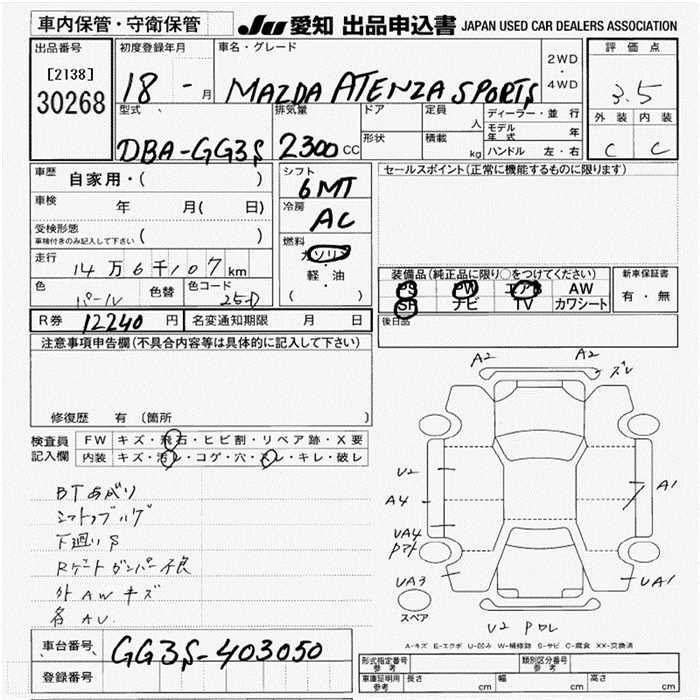 車内保管・守衛保管 JU 愛知 出品申込書 JAPAN USED CAR DEALERS ASSOCIATION
出品番号 初度登録年月 車名・グレード 評価点
[2138] 2WD・4WD
30268 18 - 月 MAZDA ATENZA SPORTS 3.5
型式 排気量 ドア 定員 人 ディーラー・並行 外装 内装
モデル年式 年
DBA-GG3S 2300 CC 形状 積載 kg ハンドル 左・右 C C
車歴 自家用・( ) シフト 6MT セールスポイント(正常に機能するものに限ります)
車検 年 月( 日) 冷房 AC
受検形態
車検付きのみ記入して下さい ( )
燃料 ガソリン・軽・油 ( )
走行 14万6千107km
装備品(純正品に限り○をつけてください) 新車保証書
色 パール 色替 色コード 25D
PS PW エアB AW 有・無
SR ナビ TV カワシート
R券 12240 円 名変通知期限 月 日 後日品
注意事項申告欄(不具合内容等は具体的に記入して下さい)
修復歴 有 (箇所 )
検査員記入欄 FW キズ・飛石・ヒビ割・リペア跡・X要
内装 キズ・汚レ・コゲ・穴・スレ・キレ・破レ
BTあがり
シフトノブハゲ
下廻りS
Rゲートダンパー不良
外AWキズ
名AU.
A2 A2 ズレ
U2 A1
A4
UA4
UA3 UA1
スペア
U2
A-キズ E-エクボ U-凹み W-補修跡 S-サビ C-腐食 XX-交換済
車台番号 GG3S-403050
登録番号
形式指定番号 参考 類別区分番号 参考
車庫証明用 参考 長さ cm 幅 cm 高さ cm